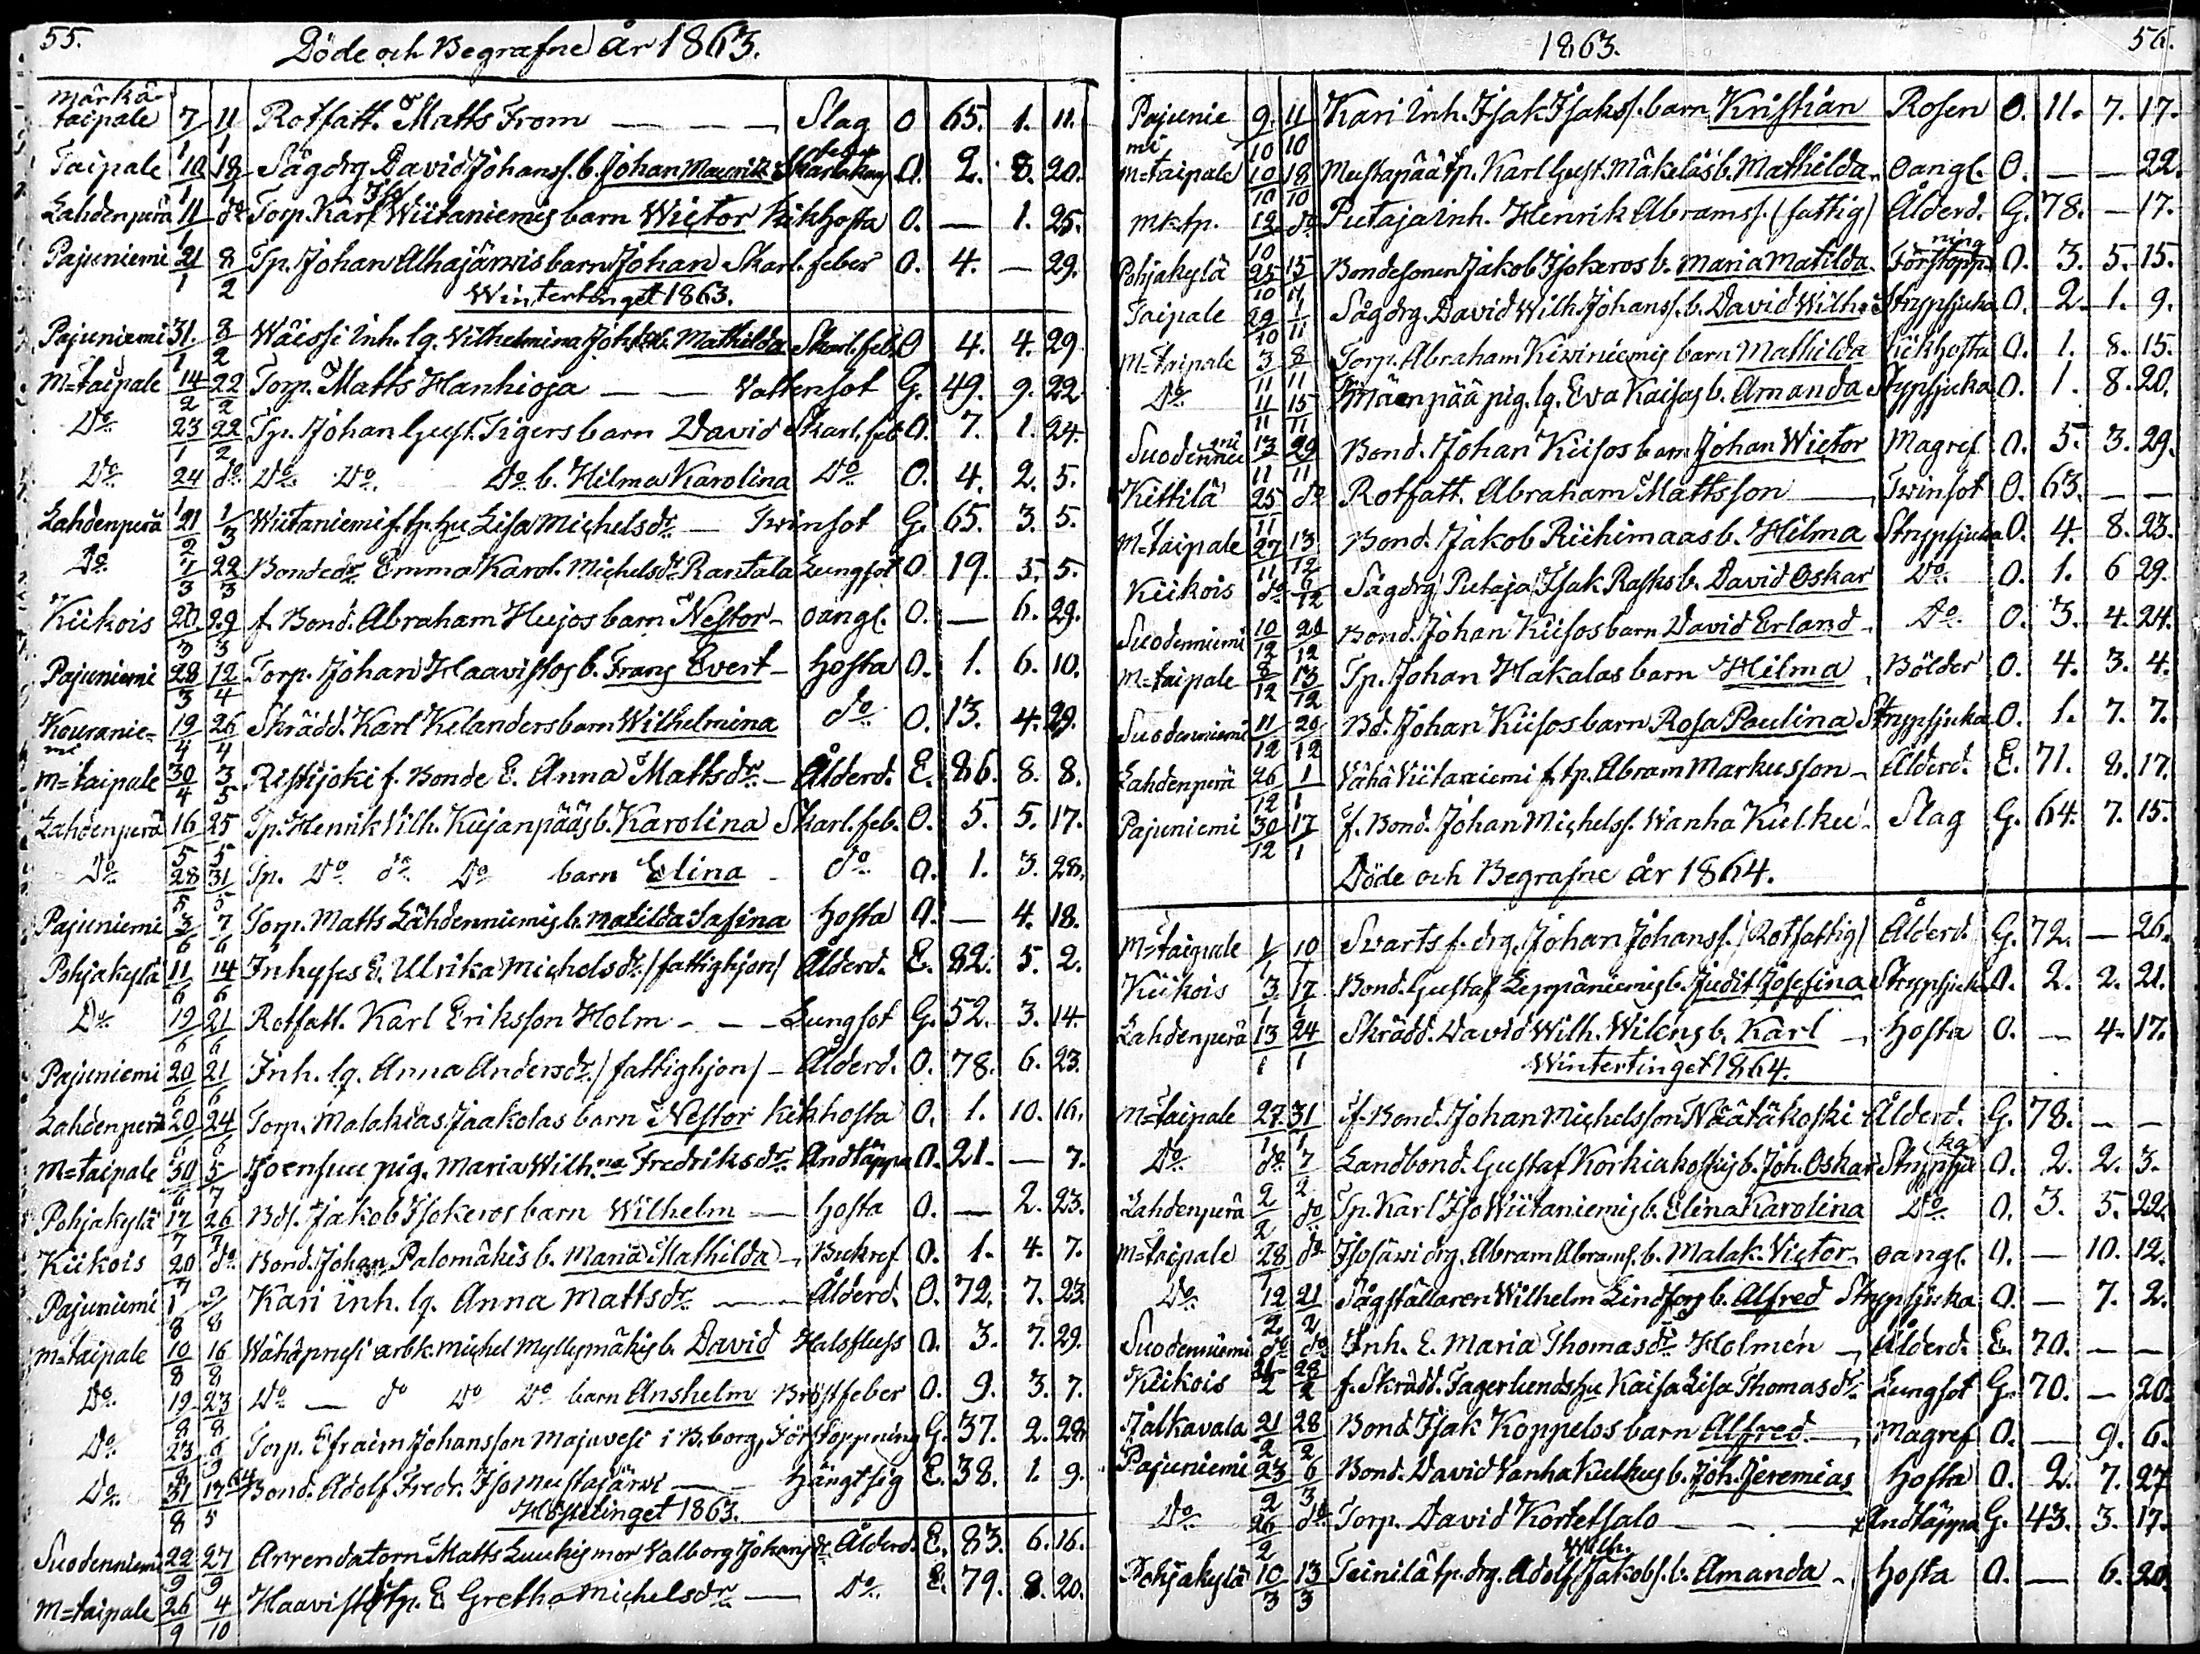 55.
Döde och Begrafne år 1863.
Märkä-
taipale 7/1 11/1 Rotfatt. Matts From — — — Slag O 65. 1. 11.
Taipale 10/1 18/1 Sågdrg David Johanss. b. Johan Maurits O. 2. 8. 20.
Lahdenperä 11/1 do Torp. Karl Wiitaniemis barn Wictor Kikhosta O. — 1. 25.
Pajuniemi 21/1 8/2 Tp. Johan Alhajärwis barn Johan Skarl. feber O. 4. — 29.
Wintertinget 1863.
Pajuniemi 31/1 8/2 Wäissi inh. lq. Vilhelmina b. Mathilda Skarl. feb. O 4. 4. 29
M=taipale 14/2 22/2 Torp. Matts Hanhioja — — Vattensot G. 49. 9. 22
Do 23/1 22/2 Tp. Johan Gust. Tigers barn David Skarl. feb O. 7. 1. 24.
Do 24/1 do Do Do Do b. Hilma Karolina Do O. 4. 2. 5.
Lahdenperä 21/2 1/3 Wiitaniemi f. tp. hu Lisa Michelsdr — Twinsot G. 65. 3. 5.
Do 7/3 22/3 Bondedr Emma Karol. Michelsdr Rantala Lungsot O 19. 5. 5.
Kiikois 20/3 29/3 f. Bond. Abraham Hujos barn Nestor — oangl. O. — 6. 29.
Pajuniemi 28/3 12/4 Torp. Johan Haavistos b. Frans Evert — hosta O. 1. 6. 10.
Kouranie-
mi 19/4 26/4 Skrädd. Karl Kelanders barn Wilhelmina do O. 13. 4. 29.
M=taipale 30/4 3/5 Ristijoki f. Bonde E. Anna Mattsdr — Ålderd. E. 86. 8. 8.
Lahdenperä 16/5 25/5 Tp. Henrik Vilh. Kujanpääs b. Karolina Skarl. feb. O. 5. 5. 17.
Do 28/5 31/5 Tp. Do do Do barn Elina — do O. 1. 3. 28.
Pajuniemi 3/6 7/6 Torp. Matts Lähdenniemis b. Matilda Safina hosta O. — 4. 18.
Pohjakylä 11/6 14/6 Inhyses E. Ulrika Michelsdr /fattighjon/ Ålderd. E. 82. 5. 2.
Do 19/6 21/6 Rotfatt. Karl Eriksson Holm — — Lungsot G. 52. 3. 14.
Pajuniemi 20/6 21/6 Inh. lq. Anna Andersdr /fattighjon/ — Ålderd. O. 78. 6. 23.
Lahdenperä 20/6 24/6 Torp. Malakias Jaakolas barn Nestor Kikhosta O. 1. 10. 16.
M=taipale 30/6 5/7 Joensuu pig. Maria Wilh:na Fredriksdr Andtäppa O. 21. — 7.
Pohjakylä 17/7 26/7 Bds. Jakob Isokeros barn Wilhelm — hosta O. — 2. 23.
Kiikois 20/7 do Bond. Johan Palomäkis b. Maria Mathilda — Bukref O. 1. 4. 7.
Pajuniemi 1/8 2/8 Kari inh. lq. Anna Mattsdr — Ålderd. O. 72. 7. 23.
M=taipale 10/8 16/8 Wähäprusi arbk. Michel Myllymäkis b. David Halsfluss O. 3. 7. 29.
Do 19/8 23/8 Do — do Do Do barn Anshelm Bröstfeber O. 9. 3. 7.
Do 23/8 6/9 Torp. Efraim Johansson Majavesi i B.borg, Förstoppning G. 37. 2. 28.
Do 31/8 17/5 64 Bond. Adolf Fredr. Isomustajärwi — Hängt sig E. 38. 1. 9.
Hösttinget 1863.
Suodenniemi 22/9 27/9 Arrendatorn Matts Luukis mor Valborg Johansdr Ålderd. E. 83. 6. 16.
M=taipale 26/9 4/10 Haavisto tp. E. Gretha Michelsdr — Do E. 79. 8. 20.
1863.
56.
Pajunie
mi 9/10 11/10 Kari Inh. Isak Isakss. barn Kristian Rosen O. 11. 7. 17.
M=taipale 10/10 18/10 Mustapää tp. Karl Gust. Mäkeläs b. Mathilda oangl. O. — — 22.
Mk.tp. 12/10 do Putaja inh. Henrik Abramss. /fattig/ Ålderd. G. 78. — 17.
Pohjakylä 25/10 15/11 Bondesonen Jakob Isokeros b. Maria Matilda Förstoppning O. 3. 5. 15.
Taipale 29/10 1/11 Sågdrg. David Wilh. Johanss. b. David Wilh. Strypsjuka O. 2. 1. 9.
M=taipale 3/11 8/11 Torp. Abraham Kiwiniemis barn Mathilda Kikhosta O. 1. 8. 15.
Do 11/11 15/11 Mäenpää pig. lq. Eva Kaisas b. Amanda Strypsjuka O. 1. 8. 20.
Suodenniemi 13/11 29/11 Bond. Johan Kiisos barn Johan Wictor Magref O. 5. 3. 29.
Kittilä 25/11 do Rotfatt. Abraham Mattsson — Twinsot O. 63. — —
M=taipale 27/11 13/12 Bond. Jakob Riihimaas b. Hilma Strypsjuka O. 4. 8. 23.
Kiikois do 6/12 Sågdrg Putaja Isak Rasks b. David Oskar Do O. 1. 6 29.
Suodenniemi 10/12 20/12 Bond. Johan Kiisos barn David Erland — Do O. 3. 4. 24.
M=taipale 8/12 13/12 Tp. Johan Hakalas barn Hilma Bölder O. 4. 3. 4.
Suodenniemi 11/12 20/12 Bd. Johan Kiisos barn Rosa Paulina Strypsjuka O. 1. 7. 7.
Lahdenperä 26/12 1/1 Vähä Viitaniemi f. tp. Abram Markusson — Ålderd. E. 71. 8. 17.
Pajuniemi 30/12 17/1 f. Bond. Johan Michelss. Wanha Kulku — Slag G. 64. 7. 15.
Döde och Begrafne år 1864.
M=taipale 1/1 10/1 Svarts f. drg. Johan Johanss. /Rotfattig/ Ålderd. G. 72. — 26.
Kiikois 3/1 17/1 Bond. Gustaf Leppäniemis b. Judit Josefina Strypsjuk. O. 2. 2. 21.
Lahdenperä 13/1 24/1 Skrädd. David Wilh. Wilens b. Karl — hosta O. — 4. 17.
Wintertinget 1864.
M=taipale 27/1 31/1 f. Bond. Johan Michelsson Näätäkoski Ålderd. G. 78. — —
Do do 7/2 Landbond. Gustaf Korkiakoskis b. Joh. Oskar Strypsjuka O. 2. 2. 3.
Lahdenperä 2/2 do Tp. Karl Iso Wiitaniemis b. Elina Karolina Do O. 3. 5. 22.
M=taipale 28/1 do drg. Abram Abramss. b. Malak. Victor oangl. O. — 10. 12.
Do 12/2 21/2 Sågställaren Wilhelm Lindfors b. Alfred Strypsjuka O. — 7. 2.
Suodenniemi do do Inh. E. Maria Thomasdr Holmén — Ålderd. E. 70. — —
Kiikois 28/2 f. Skrädd. Fagerlunds hu Kaisa Lisa Thomasdr Lungsot G. 70. — 20.
Jalkavala 21/2 28/2 Bond. Isak Koppelos barn Alfred — Magref O. — 9. 6.
Pajuniemi 23/2 6/3 Bond. David Vanha Kulkus b. Joh. Jeremias hosta O. 2. 7. 27
Do 26/2 do Torp. David Kortetsalo — — Andtäppa G. 43. 3. 17.
Pohjakylä 10/3 13/3 Teinilä tp. drg. Adolf Wilh. Jakobs. b. Amanda — hosta O. — 6. 20.